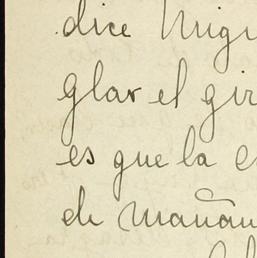 dice Migu
glar el gir
es que la e
de mañan